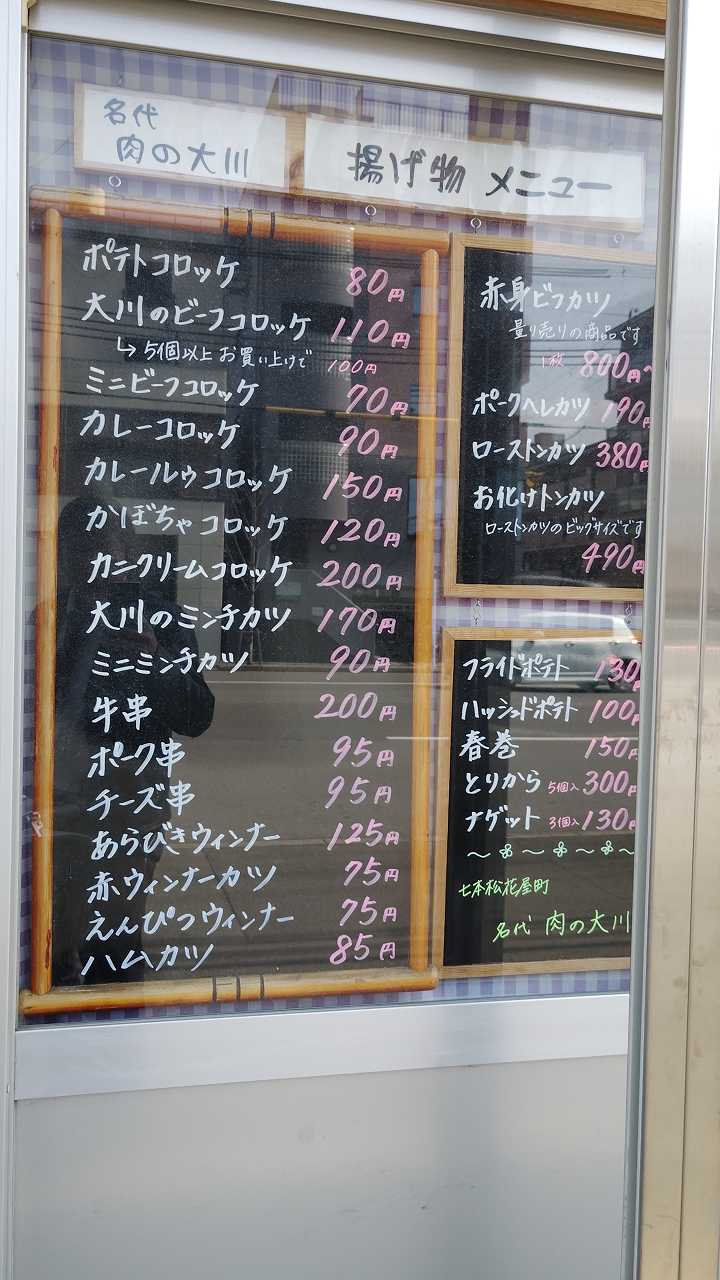 名代
肉の大川
揚げ物 メニュー
ポテトコロッケ 80円
大川のビーフコロッケ 110円
↳ 5個以上 お買い上げで 100円
ミニビーフコロッケ 70円
カレーコロッケ 90円
カレールゥコロッケ 150円
かぼちゃコロッケ 120円
カニクリームコロッケ 200円
大川のミンチカツ 170円
ミニミンチカツ 90円
牛串 200円
ポーク串 95円
チーズ串 95円
あらびきウィンナー 125円
赤ウィンナーカツ 75円
えんぴつウィンナー 75円
ハムカツ 85円
赤身ビフカツ
量り売りの商品です
1枚 800円〜
ポークヘレカツ 190円
ローストンカツ 380円
お化けトンカツ
ローストンカツのビッグサイズです
490円
フライドポテト 130円
ハッシュドポテト 100円
春巻 150円
とりから 5個入 300円
ナゲット 3個入 130円
七本松花屋町
名代 肉の大川